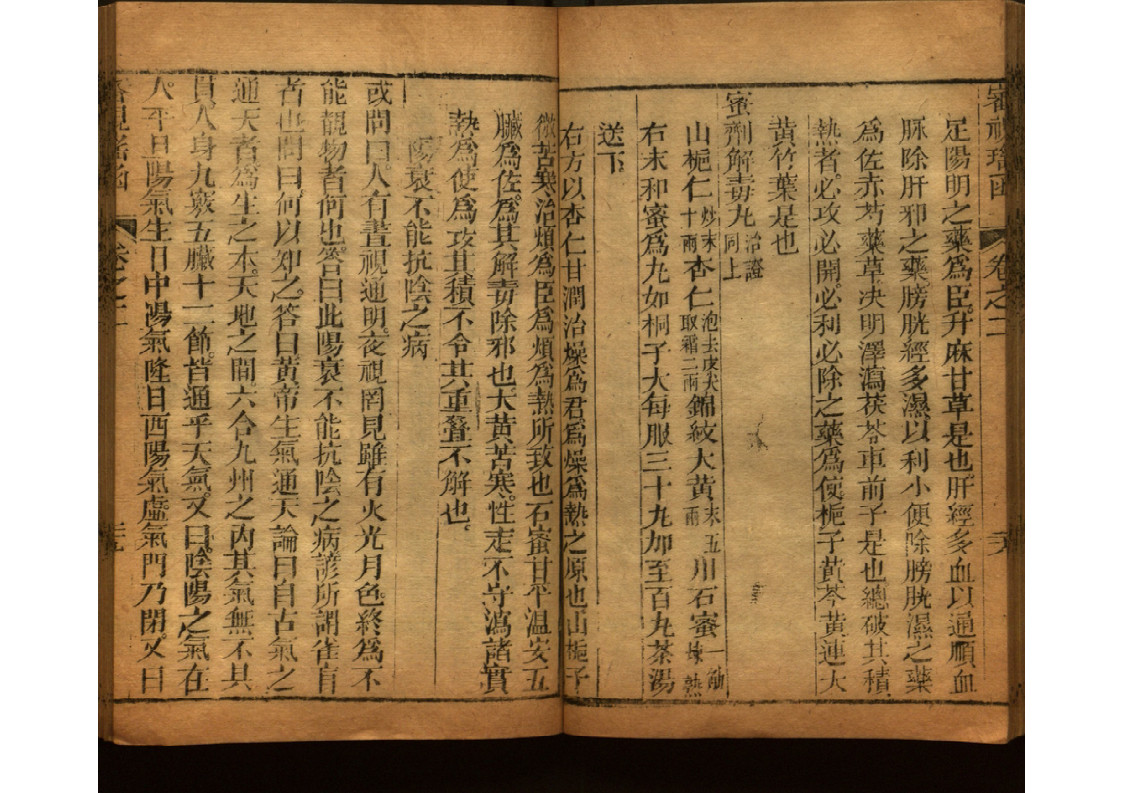 審視瑤函 卷之二
足陽明之藥爲臣升麻甘草是也肝經多血以通順血
脉除肝邪之藥膀胱經多濕以利小便除膀胱濕之藥
爲佐赤芍藥草决明澤瀉茯苓車前子是也總破其積
熱者必攻必開必利必除之藥爲使梔子黃芩黃連大
黃竹葉是也
蜜劑解毒丸 治證同上
山梔仁 炒末十兩 杏仁 泡去皮尖取霜二兩 錦紋大黃 末五兩 川石蜜 一觔煉熟
右末和蜜爲丸如桐子大每服三十丸加至百丸茶湯
送下
右方以杏仁甘潤治燥爲君爲燥爲熱之原也山梔子
微苦寒治煩爲臣爲煩爲熱所致也石蜜甘平温安五
臟爲佐爲其解毒除邪也大黃苦寒性走不守瀉諸實
熱爲使爲攻其積不令其重疊不解也
陽衰不能抗陰之病
或問曰人有晝視通明夜視罔見雖有火光月色終爲不
能覩物者何也答曰此陽衰不能抗陰之病諺所謂雀盲
者也問曰何以知之答曰黃帝生氣通天論曰自古氣之
通天者爲生之本天地之間六合九州之内其氣無不具
貫人身九竅五臟十二節皆通乎天氣又曰陰陽之氣在
人平旦陽氣生日中陽氣隆日西陽氣虛氣門乃閉又曰
審視瑤函 卷之二